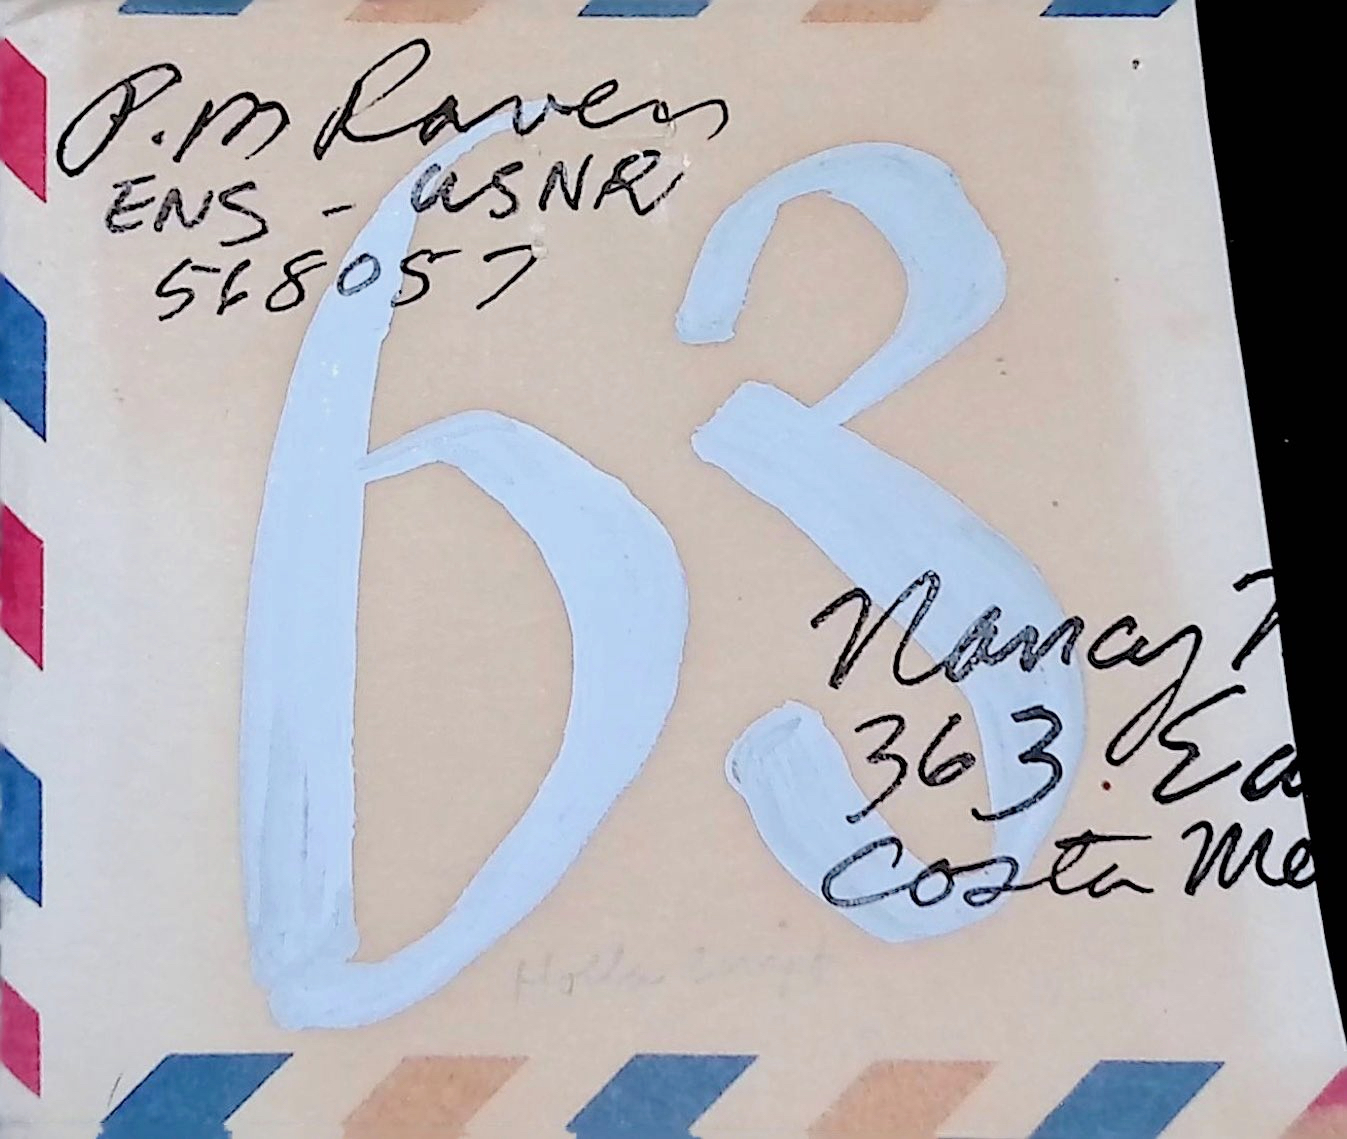 P.M Raven
ENS - USNR
568057
63
Nancy
363 Ea
Costa Me